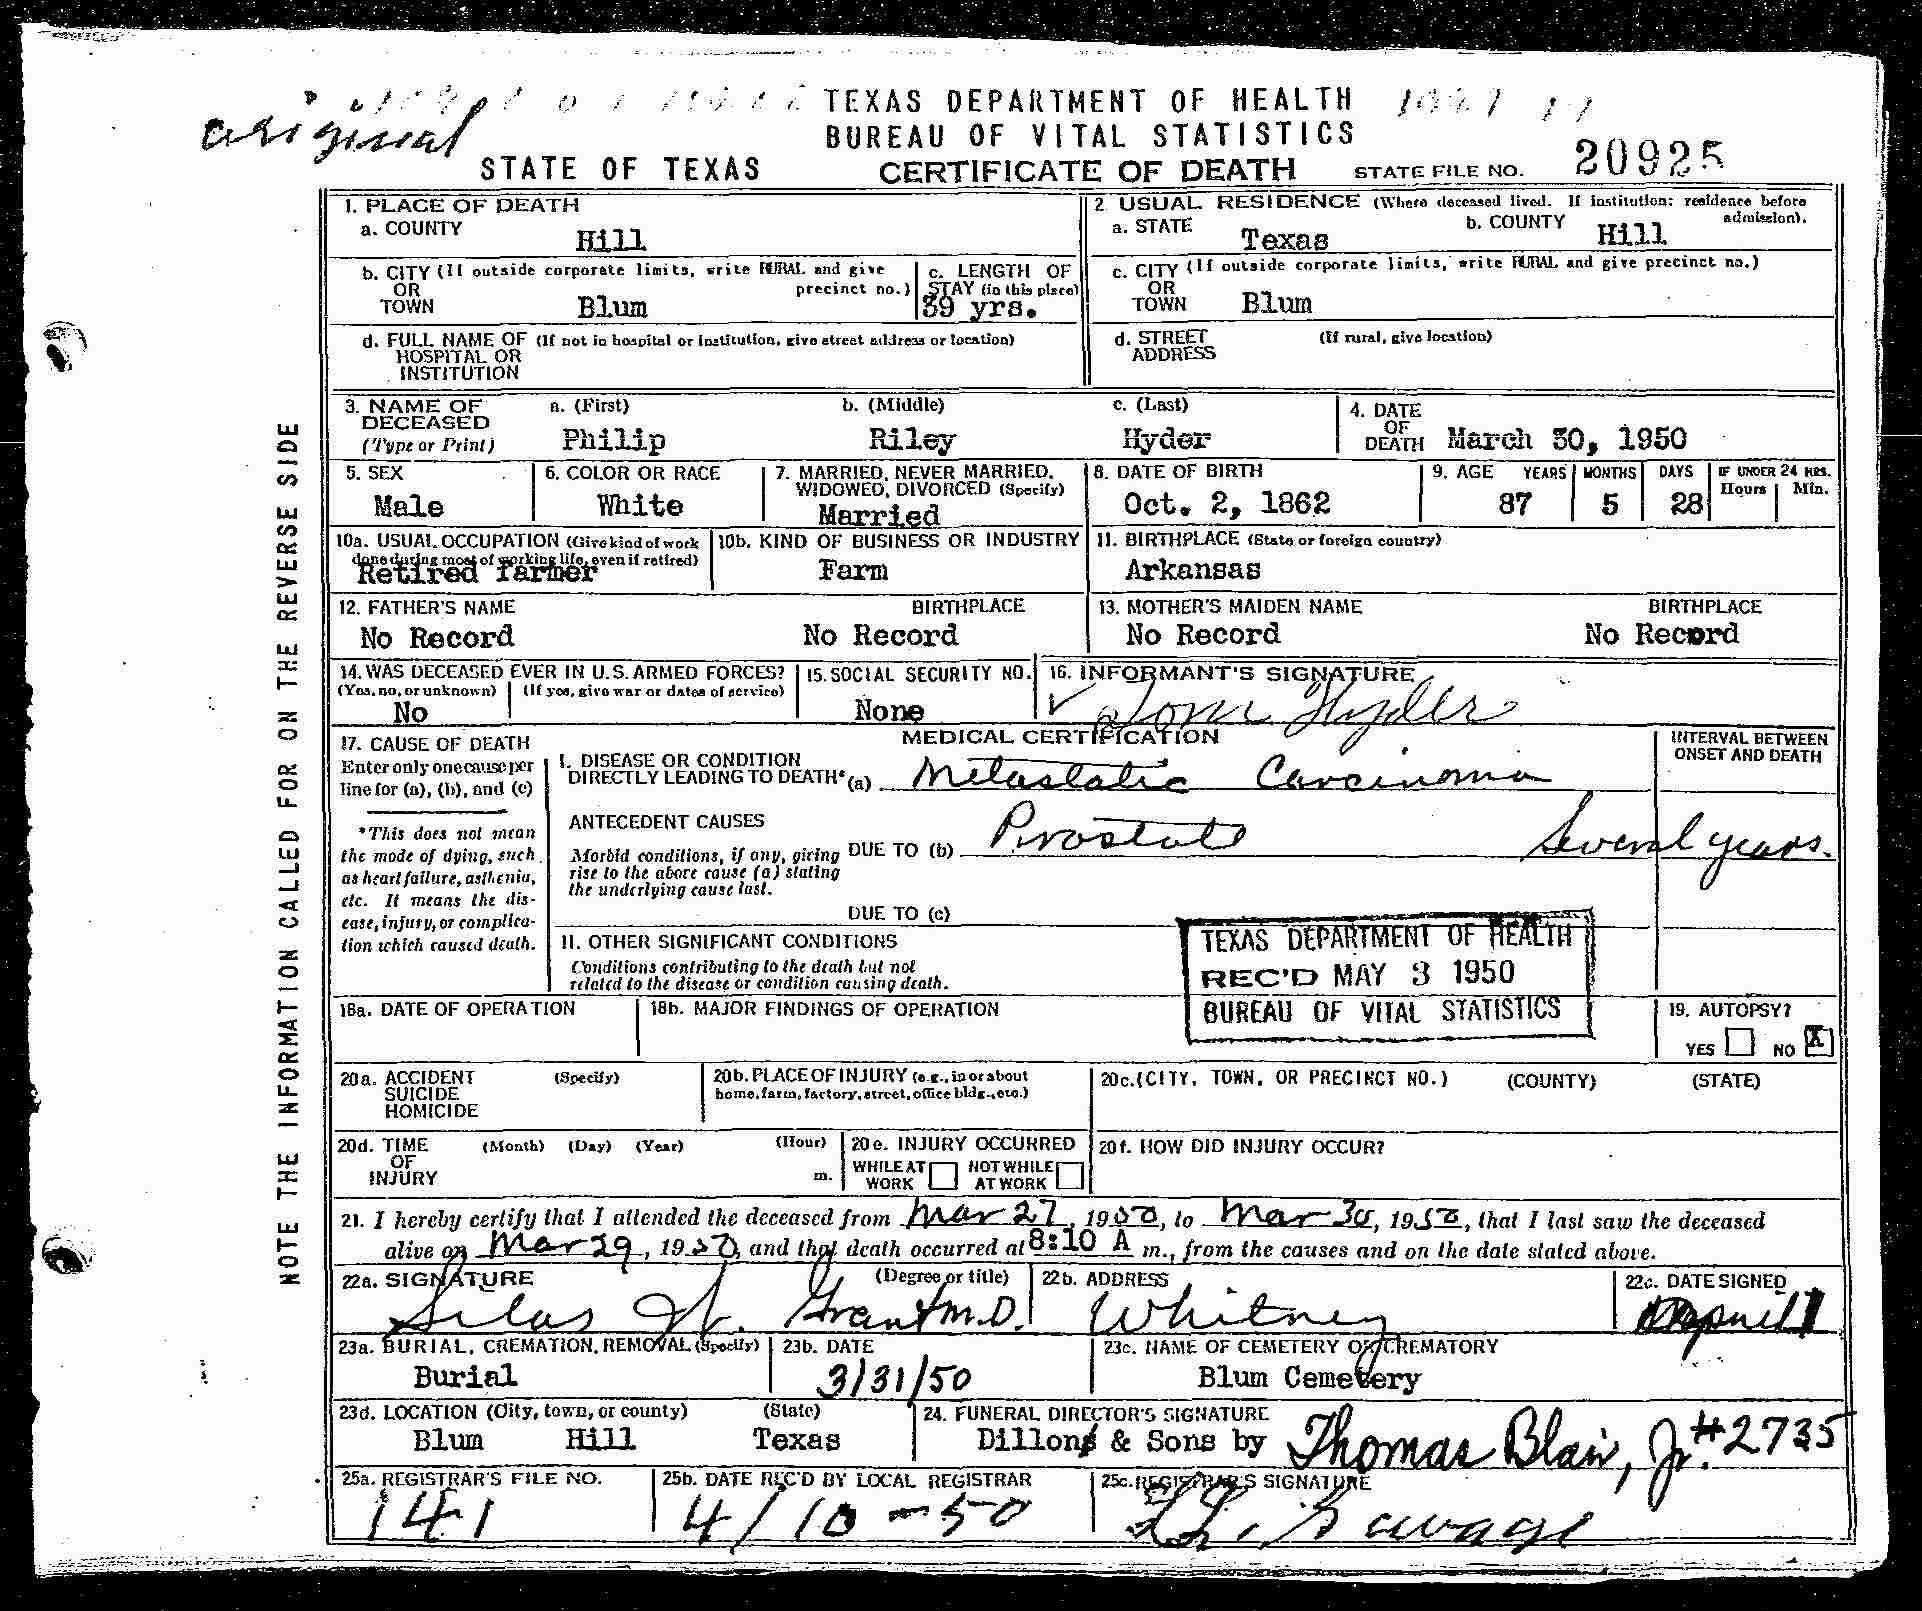 original
TEXAS DEPARTMENT OF HEALTH
BUREAU OF VITAL STATISTICS
STATE OF TEXAS CERTIFICATE OF DEATH STATE FILE NO. 20925
NOTE THE INFORMATION CALLED FOR ON THE REVERSE SIDE
1. PLACE OF DEATH
a. COUNTY Hill
2. USUAL RESIDENCE (Where deceased lived. If institution: residence before admission).
a. STATE Texas b. COUNTY Hill
b. CITY (If outside corporate limits, write RURAL and give precinct no.)
OR
TOWN Blum
c. LENGTH OF
STAY (in this place)
39 yrs.
c. CITY (If outside corporate limits, write RURAL and give precinct no.)
OR
TOWN Blum
d. FULL NAME OF (If not in hospital or institution, give street address or location)
HOSPITAL OR
INSTITUTION
d. STREET (If rural, give location)
ADDRESS
3. NAME OF DECEASED (Type or Print)
a. (First) b. (Middle) c. (Last)
Philip Riley Hyder
4. DATE OF DEATH March 30, 1950
5. SEX
Male
6. COLOR OR RACE
White
7. MARRIED, NEVER MARRIED,
WIDOWED, DIVORCED (Specify)
Married
8. DATE OF BIRTH
Oct. 2, 1862
9. AGE YEARS MONTHS DAYS IF UNDER 24 HRS.
Hours Min.
87 5 28
10a. USUAL OCCUPATION (Give kind of work
done during most of working life, even if retired)
Retired farmer
10b. KIND OF BUSINESS OR INDUSTRY
Farm
11. BIRTHPLACE (State or foreign country)
Arkansas
12. FATHER'S NAME BIRTHPLACE
No Record No Record
13. MOTHER'S MAIDEN NAME BIRTHPLACE
No Record No Record
14. WAS DECEASED EVER IN U.S. ARMED FORCES?
(Yes, no, or unknown) (If yes, give war or dates of service)
No
15. SOCIAL SECURITY NO.
None
16. INFORMANT'S SIGNATURE
Tom Hyder
MEDICAL CERTIFICATION
17. CAUSE OF DEATH
Enter only one cause per
line for (a), (b), and (c)
*This does not mean
the mode of dying, such
as heart failure, asthenia,
etc. It means the dis-
ease, injury, or complica-
tion which caused death.
I. DISEASE OR CONDITION
DIRECTLY LEADING TO DEATH* (a) Metastatic Carcinoma
INTERVAL BETWEEN
ONSET AND DEATH
ANTECEDENT CAUSES
Morbid conditions, if any, giving
rise to the above cause (a) stating
the underlying cause last.
DUE TO (b) Prostate Several years.
DUE TO (c)
II. OTHER SIGNIFICANT CONDITIONS
Conditions contributing to the death but not
related to the disease or condition causing death.
TEXAS DEPARTMENT OF HEALTH
REC'D MAY 3 1950
BUREAU OF VITAL STATISTICS
18a. DATE OF OPERATION
18b. MAJOR FINDINGS OF OPERATION
19. AUTOPSY?
YES NO X
20a. ACCIDENT (Specify)
SUICIDE
HOMICIDE
20b. PLACE OF INJURY (e.g., in or about
home, farm, factory, street, office bldg., etc.)
20c. (CITY, TOWN, OR PRECINCT NO.) (COUNTY) (STATE)
20d. TIME (Month) (Day) (Year) (Hour)
OF
INJURY m.
20e. INJURY OCCURRED
WHILE AT WORK NOT WHILE AT WORK
20f. HOW DID INJURY OCCUR?
21. I hereby certify that I attended the deceased from Mar 27, 1950, to Mar 30, 1950, that I last saw the deceased
alive on Mar 29, 1950, and that death occurred at 8:10 A m., from the causes and on the date stated above.
22a. SIGNATURE (Degree or title)
Silas W. Grant M.D.
22b. ADDRESS
Whitney
22c. DATE SIGNED
23a. BURIAL, CREMATION, REMOVAL (Specify)
Burial
23b. DATE
3/31/50
23c. NAME OF CEMETERY OR CREMATORY
Blum Cemetery
23d. LOCATION (City, town, or county) (State)
Blum Hill Texas
24. FUNERAL DIRECTOR'S SIGNATURE
Dillons & Sons by Thomas Blair, Jr. #2735
25a. REGISTRAR'S FILE NO.
141
25b. DATE REC'D BY LOCAL REGISTRAR
4/10-50
25c. REGISTRAR'S SIGNATURE
Savage